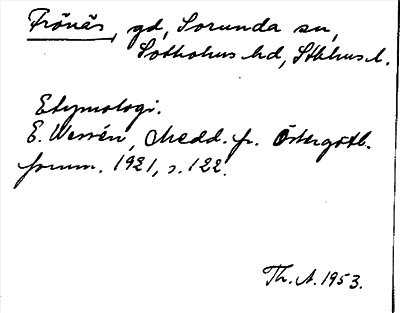 Frönäs, gd, Sorunda sn,
Sotholms hd, Sthlms l.
Etymologi.
E. Wessén, Medd. fr. Östergötl.
fornm. 1921, s. 122.
Th. A. 1953.